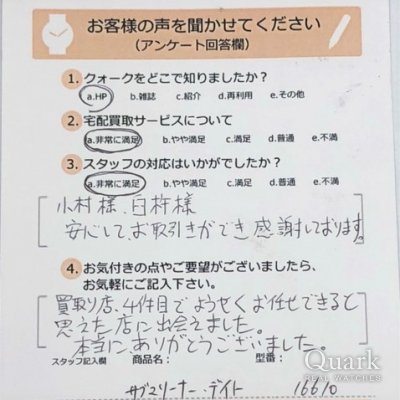 お客様の声を聞かせてください
（アンケート回答欄）
1. クォークをどこで知りましたか？
a.HP b.雑誌 c.紹介 d.再利用 e.その他
2. 宅配買取サービスについて
a.非常に満足 b.やや満足 c.満足 d.普通 e.不満
3. スタッフの対応はいかがでしたか？
a.非常に満足 b.やや満足 c.満足 d.普通 e.不満
小村様、臼杵様
安心して、お取引きができ感謝しております。
4. お気付きの点やご要望がございましたら、
お気軽にご記入下さい。
買取り店、4件目でようせくお任せできると
思えた店に出会えました。
本当にありがとうございました。
スタッフ記入欄 商品名： 型番：
サブマリーナー・デイト 16610
Quark
REAL WATCHES